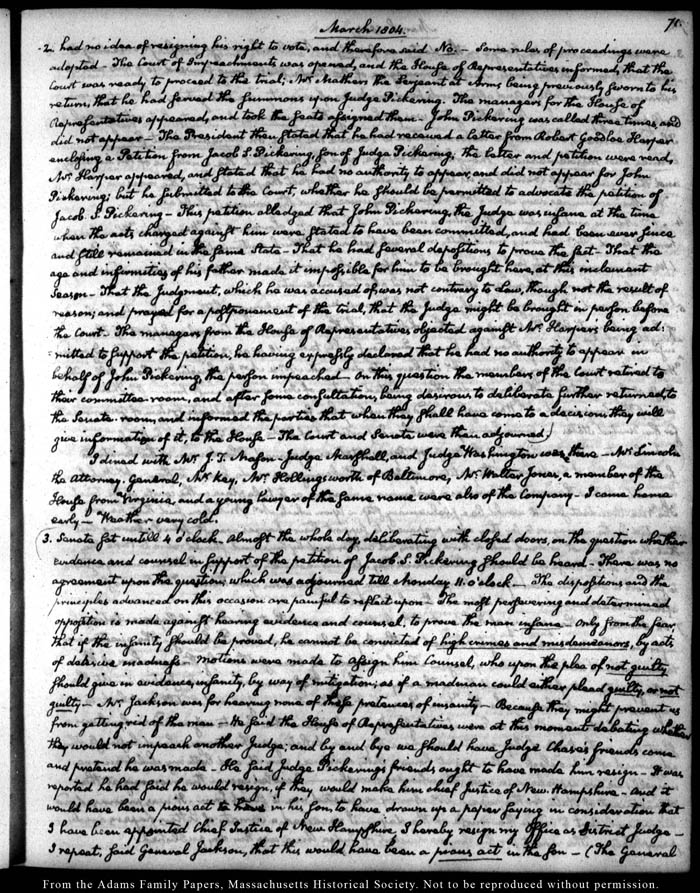 March 1804.
71.
2. had no idea of resigning his right to vote, and therefore said No. — Some rules of proceedings were
adopted — The Court of Impeachments was opened, and the House of Representatives informed, that the
Court was ready to proceed to the trial; Mr Mathers the Sergeant at Arms being previously sworn to his
return, that he had served the Summons upon Judge Pickering. The managers for the House of
Representatives appeared, and took the seats assigned them — John Pickering was called three times, and
did not appear — The President then stated that he had received a letter from Robert Goodloe Harper
enclosing a Petition from Jacob S. Pickering, son of Judge Pickering; the letter and petition were read,
Mr Harper appeared, and stated that he had no authority to appear, and did not appear for John
Pickering; but he submitted to the Court, whether he should be permitted to advocate the petition of
Jacob S. Pickering — This petition alledged that John Pickering, the Judge was insane at the time
when the acts charged against him were stated to have been committed, and had been ever since
and still remained in the same state — That he had several depositions to prove the fact — That the
age and infirmities of his father made it impossible for him to be brought here, at this inclement
season — That the Judgment, which he was accused of, was not contrary to Law, though not the result of
reason; and prayed for a postponement of the trial, that the Judge might be brought in person before
the Court — The managers from the House of Representatives objected against Mr. Harper's being ad:
mitted to support the petition, he having expressly declared that he had no authority to appear in
behalf of John Pickering, the person impeached — On this question the members of the Court retired to
their committee-room, and after some consultation, being desirous to deliberate further returned to
the Senate-room, and informed the parties that when they shall have come to a decision they will
give information of it, to the House — The Court and Senate were then adjourned.
I dined with Mr J. T. Mason — Judge Marshall, and Judge Washington were there — Mr Lincoln
the Attorney-General, Mr Key, Mr Hollingsworth of Baltimore, Mr. Walter Jones, a member of the
House from Virginia, and a young lawyer of the same name were also of the Company — I came home
early — Weather very cold.
3. Senate sat untill 4 o'clock. Almost the whole day, deliberating with closed doors, on the question whether
evidence and counsel in support of the petition of Jacob S. Pickering should be heard — There was no
agreement upon the question; which was adjourned till Monday 11. o'clock — The dispositions and the
principles advanced on this occasion are painful to reflect upon — The most persevering and determined
opposition is made against hearing evidence and counsel, to prove the man insane — Only from the fear,
that if the insanity should be proved, he cannot be convicted of high crimes and misdemeanors, by acts
of decisive madness — Motions were made to assign him Counsel, who upon the plea of not guilty
should give in evidence, insanity, by way of mitigation; as if a madman could either plead guilty, or not
guilty — Mr. Jackson was for hearing none of these pretences of insanity — Because they might prevent us
from getting rid of the man — He said the House of Representatives were at this moment debating whether
they would not impeach another Judge; and by and bye we should have Judge Chase's friends come
and pretend he was made — He said Judge Pickering's friends ought to have made him resign — It was
reported he had said he would resign, if they would make him chief Justice of New Hampshire — And it
would have been a pious act in his son, to have drawn up a paper saying in consideration that
I have been appointed Chief Justice of New Hampshire, I hereby resign my Office as District Judge —
I repeat, said General Jackson, that this would have been a pious act in the Son — (The General
From the Adams Family Papers, Massachusetts Historical Society. Not to be reproduced without permission.